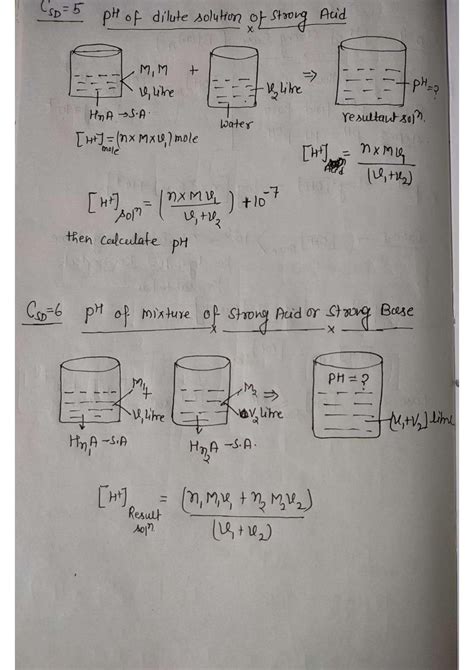 C_SD=5 pH of dilute solution of Strong Acid
M, M + ⇒
V₁ litre V₂ litre pH=?
HnA → S.A. water resultant solⁿ.
[H⁺]mole = (n×M×V₁) mole
[H⁺]Acid = n×MV₁/(V₁+V₂)
[H⁺]solⁿ = (n×MV₁/V₁+V₂) + 10⁻⁷
then calculate pH
C_SD=6 pH of mixture of Strong Acid or Strong Base
M₁ + M₂ ⇒ pH = ?
V₁ litre V₂ litre (V₁+V₂] litre
Hn₁A → S.A Hn₂A → S.A.
[H⁺]Result solⁿ = (n₁M₁V₁ + n₂M₂V₂)/(V₁+V₂)